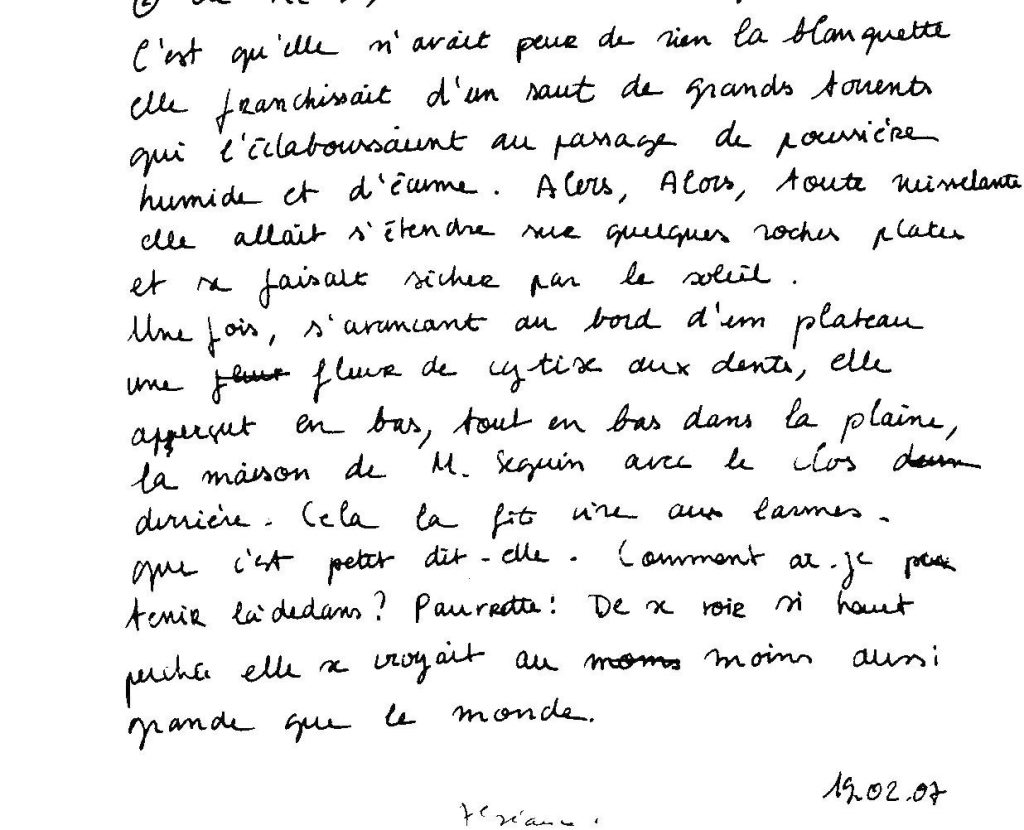 C'est qu'elle n'avait peur de rien la blanquette
elle franchissait d'un saut de grands torrents
qui l'éclaboussaient au passage de poussière
humide et d'écume. Alors, Alors, toute ruisselante
elle allait s'étendre sur quelques rocher plates
et se faisait sécher par le soleil.
Une fois, s'avancant au bord d'un plateau
une fleur fleur de cytise aux dents, elle
apperçut en bas, tout en bas dans la plaine,
la maison de M. Seguin avec le clos
derrière. Cela la fit rire aux larmes.
que c'est petit dit-elle. Comment ai-je pu
tenir là dedans? Pauvrette! De se voir si haut
perchée elle se croyait au moms moins aussi
grande que le monde.
19.02.07
7e séance.